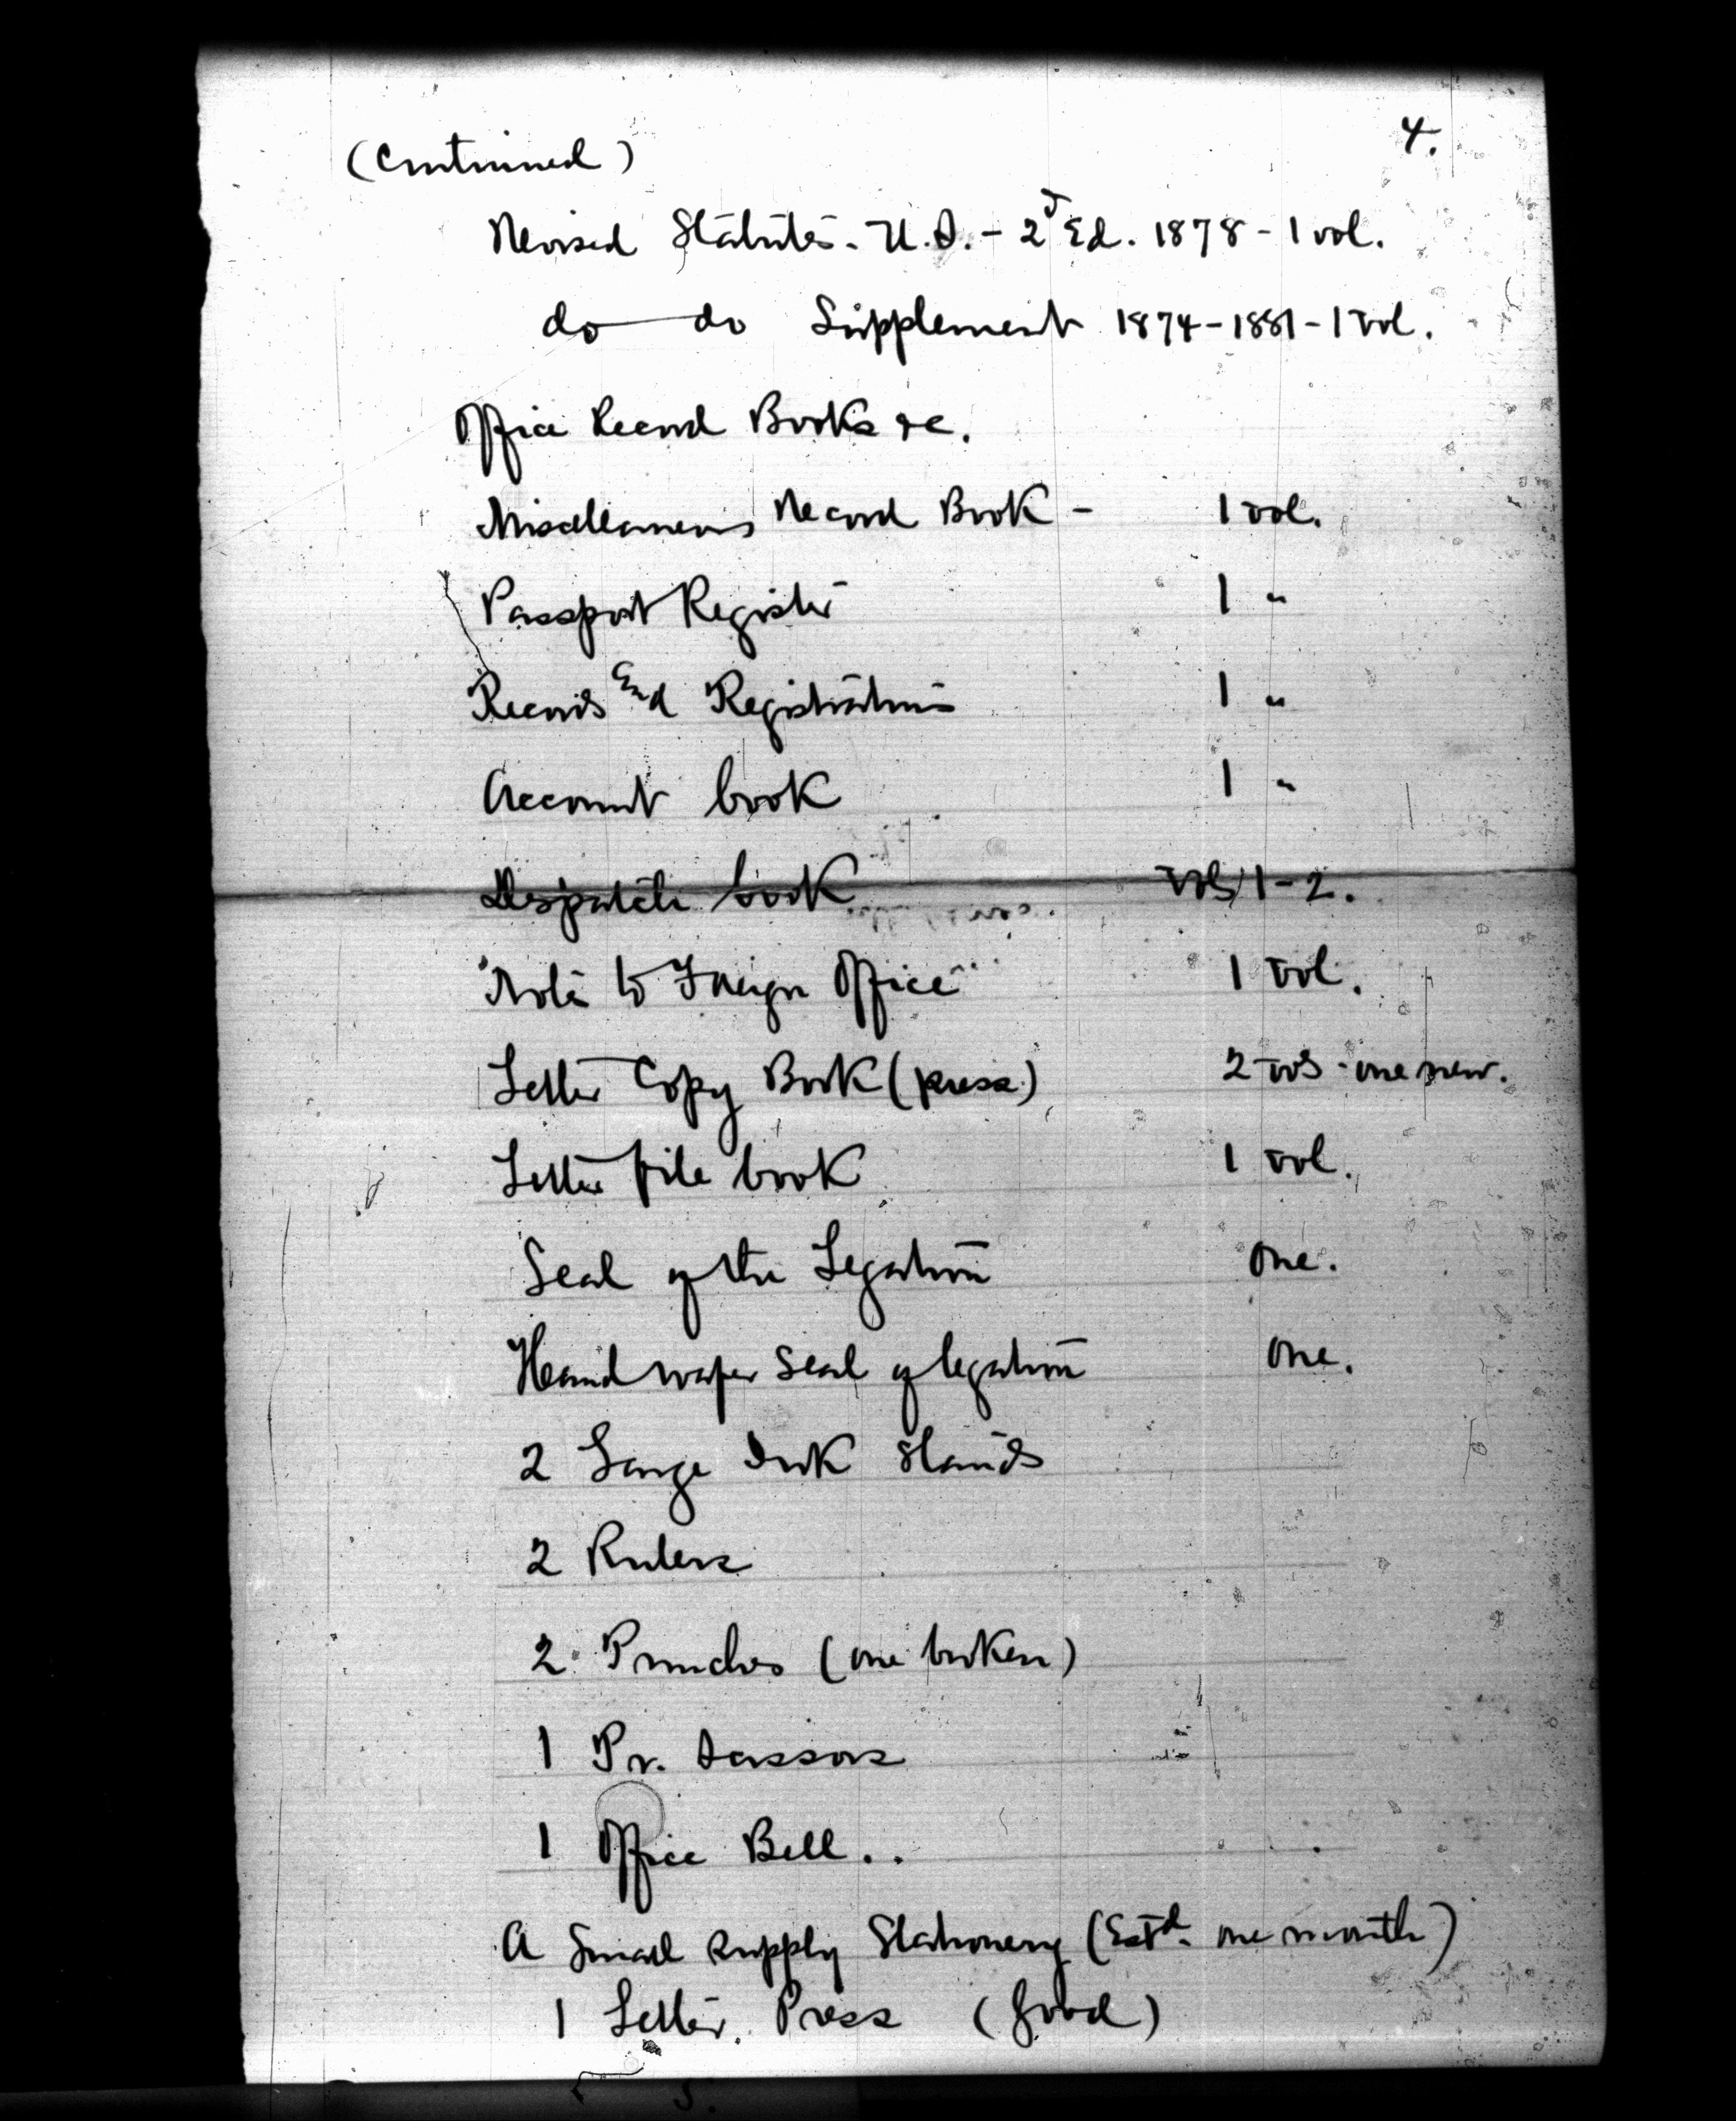 4.
(Continued)
Revised Statutes. U.S. - 2d Ed. 1878 - 1 vol.
do — do Supplement 1874-1881 - 1 vol.
Office Record Books &c.
Miscellaneous Record Book - 1 vol.
Passport Register 1 "
Records and Registrations 1 "
Account book 1 "
Despatch book vols 1-2.
"Notes to Foreign Office" 1 vol.
Letter Copy Book (press) 2 vols - one new.
Letter file book 1 vol.
Seal of the Legation One.
Hand wafer Seal of legation One.
2 Large Ink Stands
2 Rulers
2 Punches (one broken)
1 Pr. Scissors
1 Office Bell..
A Small supply Stationery (Estd. one month)
1 Letter Press (good)
5.